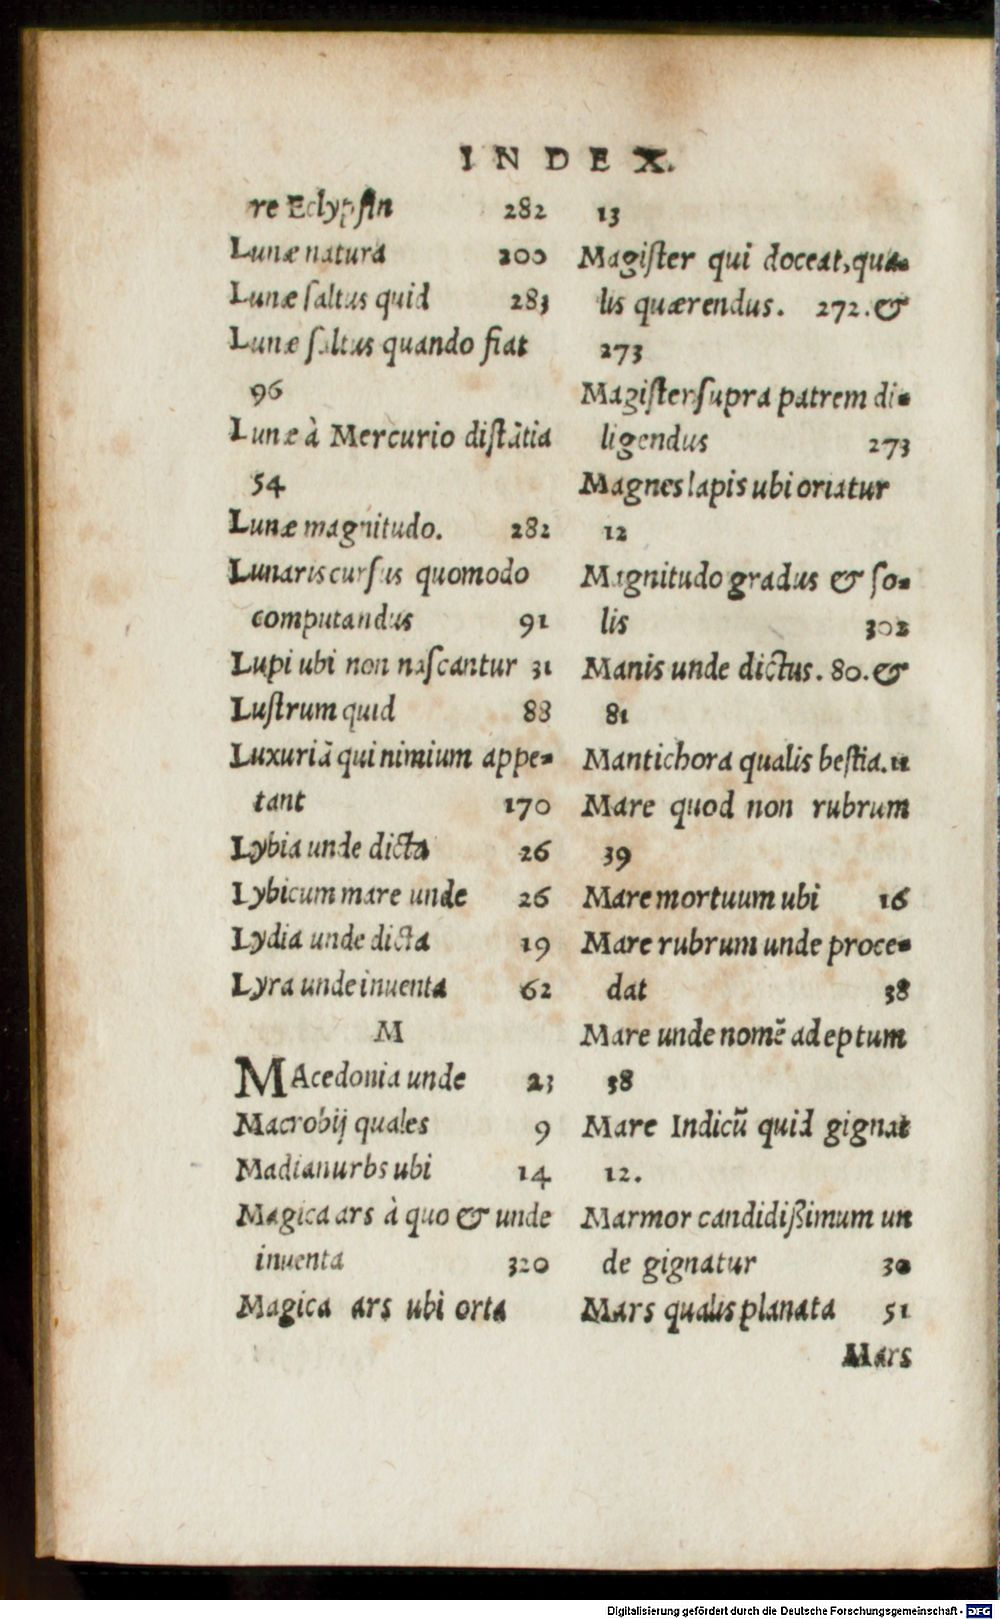 INDEX.
re Eclypsin 282
Lunæ natura 200
Lunæ saltus quid 283
Lunæ saltus quando fiat
96
Lunæ à Mercurio distãtia
54
Lunæ magnitudo. 282
Lunaris cursus quomodo
computandus 91
Lupi ubi non nascantur 31
Lustrum quid 88
Luxuriã qui nimium appe-
tant 170
Lybia unde dicta 26
Lybicum mare unde 26
Lydia unde dicta 19
Lyra unde inuenta 62
M
MAcedonia unde 23
Macrobij quales 9
Madian urbs ubi 14
Magica ars à quo & unde
inuenta 320
Magica ars ubi orta
13
Magister qui doceat, qua-
lis quærendus. 272. &
273
Magister supra patrem di-
ligendus 273
Magnes lapis ubi oriatur
12
Magnitudo gradus & so-
lis 302
Manis unde dictus. 80. &
81
Mantichora qualis bestia. 11
Mare quod non rubrum
39
Mare mortuum ubi 16
Mare rubrum unde proce-
dat 38
Mare unde nomẽ adeptum
38
Mare Indicũ quid gignat
12.
Marmor candidißimum un
de gignatur 30
Mars qualis planata 51
Mars
Digitalisierung gefördert durch die Deutsche Forschungsgemeinschaft - DFG